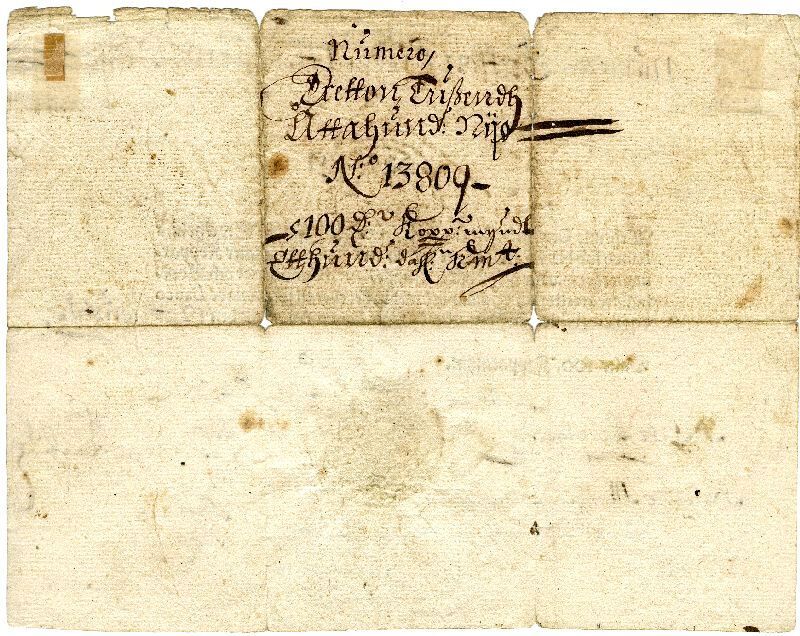 Numero/
Tretton Tußendh
Åttahund: Nijo
N:o 13809-
100 D:r Kopp:r myndt
Etthund: dal:r K m:t: